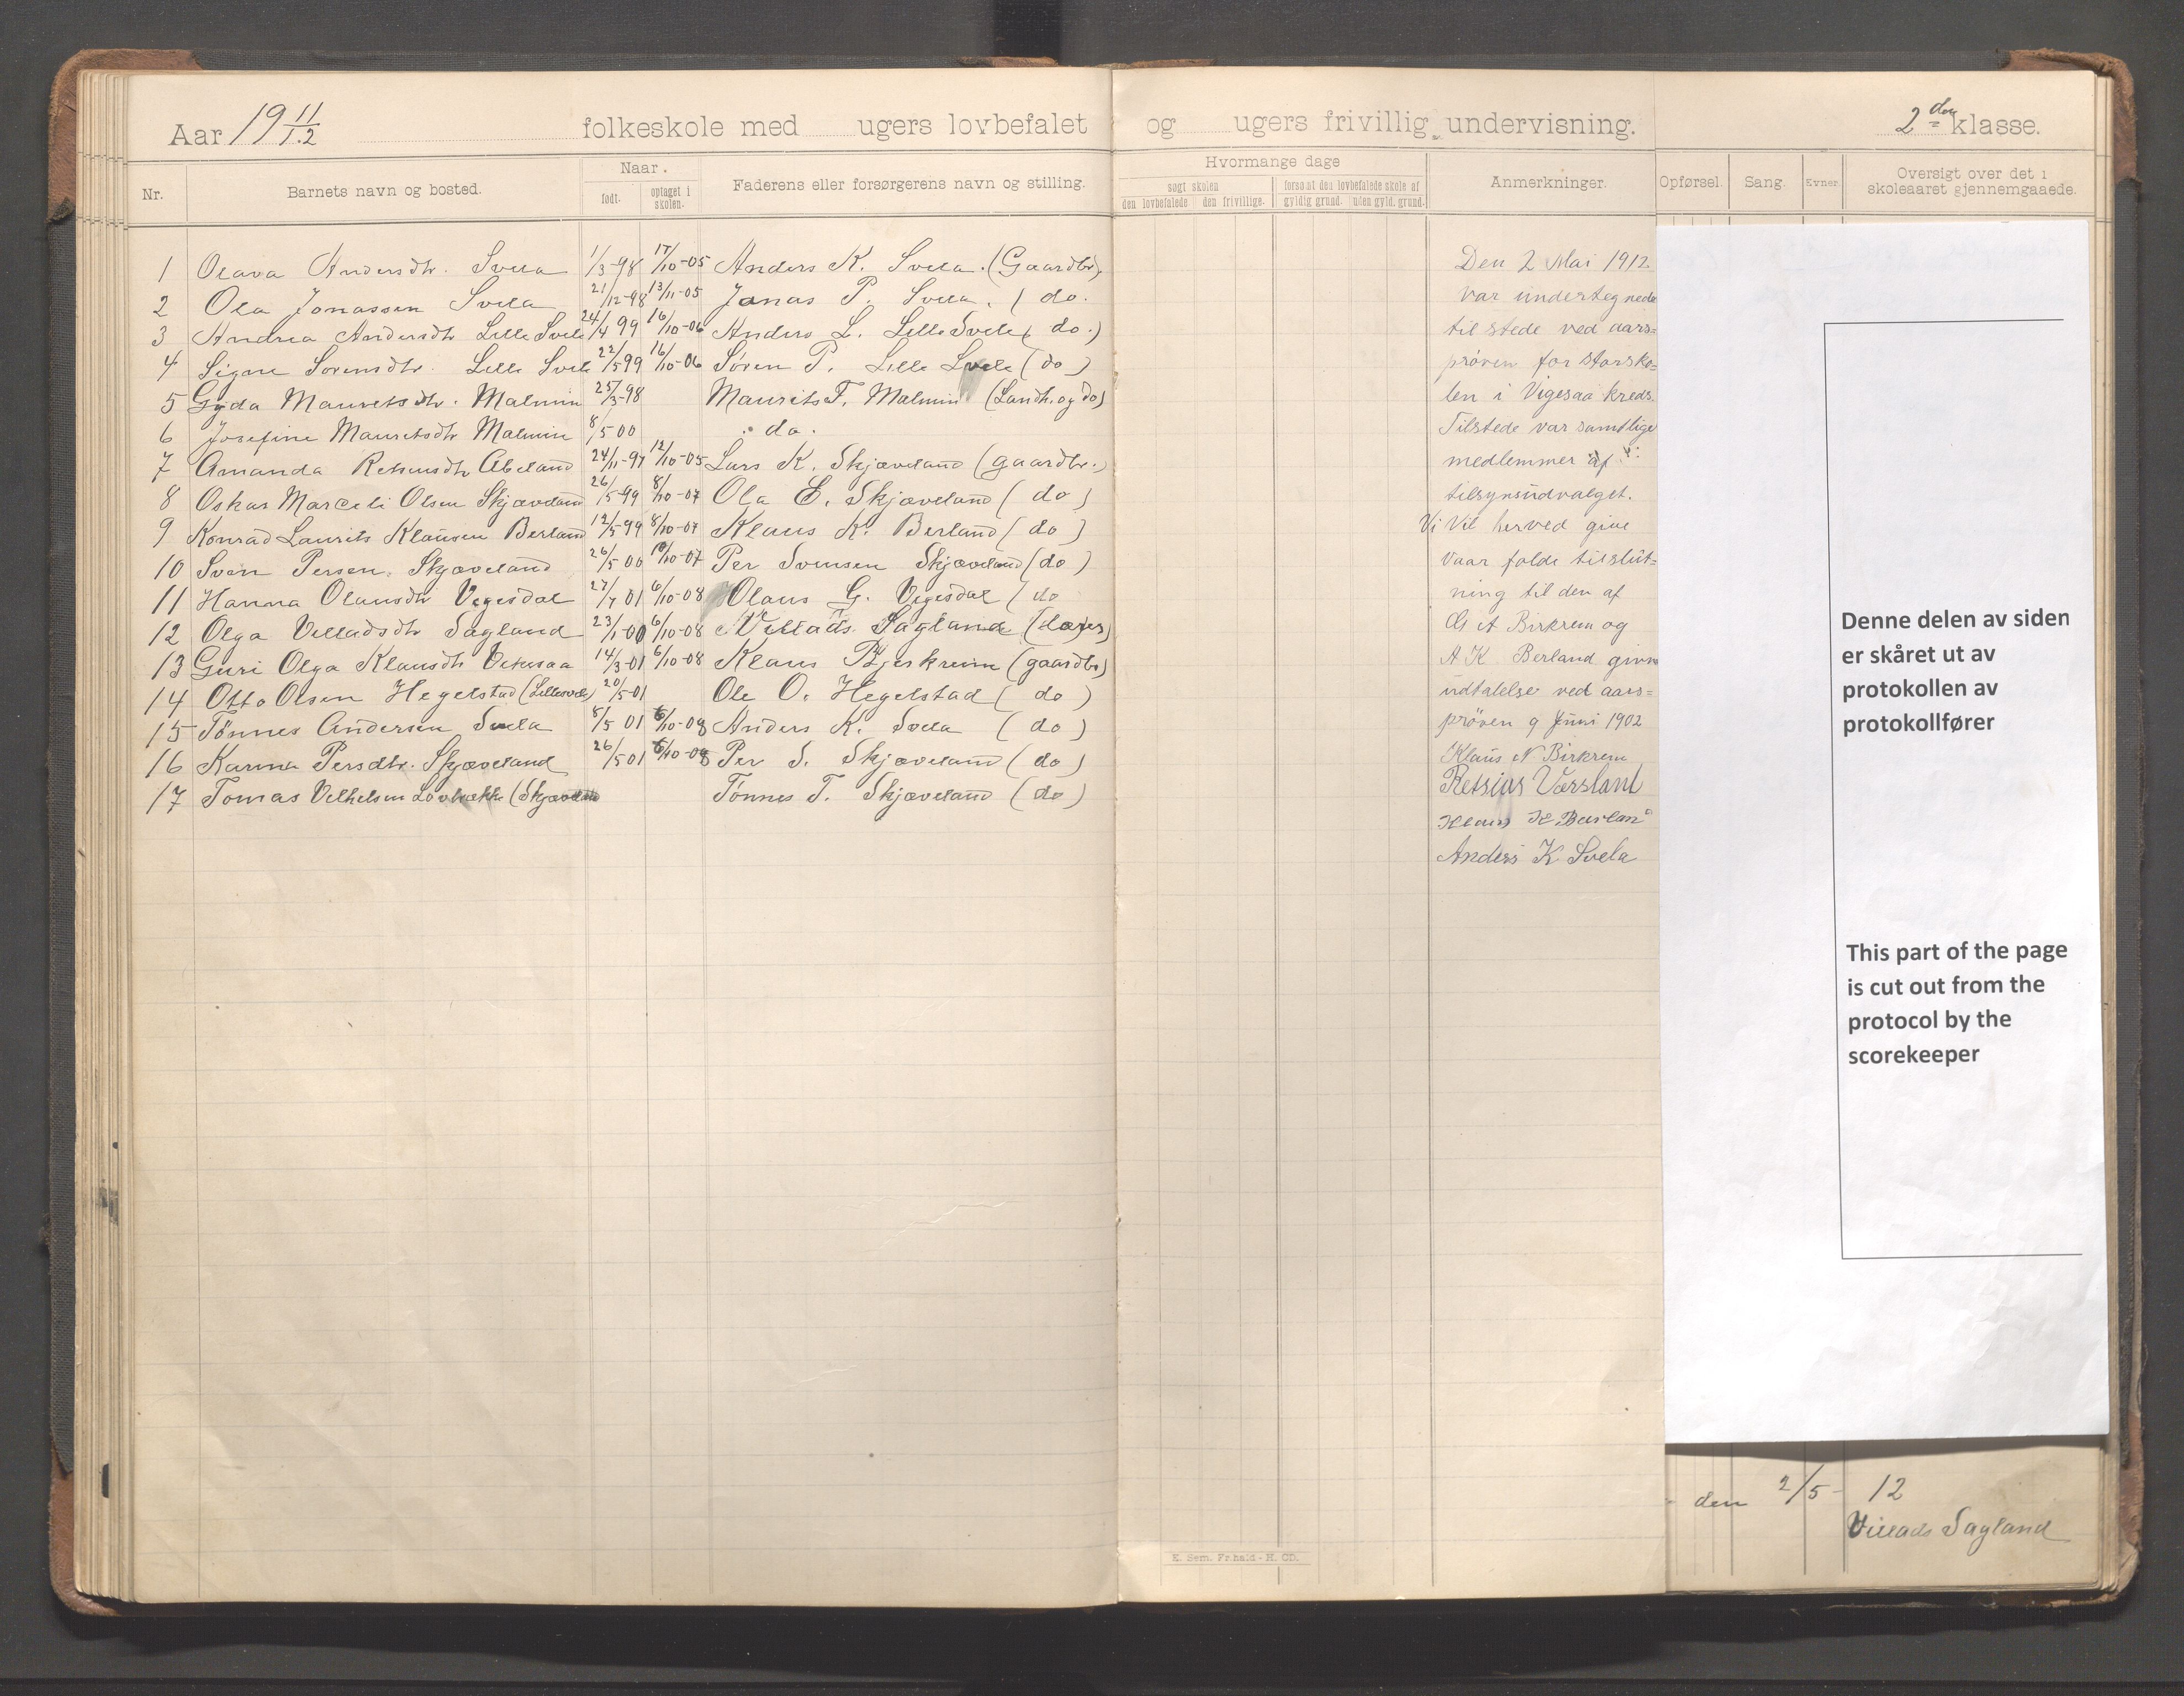 Aar 19 11/12 folkeskole med ugers lovbefalet og ugers frivillig undervisning. 2 den klasse.
Nr. Barnets navn og bosted. Naar. født. optaget i skolen. Faderens eller forsørgerens navn og stilling. Hvormange dage søgt skolen den lovbefalede den frivillige. forsømt den lovbefalede skole af gyldig grund. uden gyld. grund. Anmerkninger. Opførsel. Sang. Evner. Oversigt over det i skoleaaret gjennemgaaede.
1 Olava Andersdtr. Svela 1/3-98 17/10-05 Anders K. Svela. (Gaardbr.
2 Ola Jonassen Svela 21/12-98 13/11-05 Jonas P. Svela. ( do.
3 Andrea Andersdtr Lille Svela 24/4 99 16/10-06 Anders L. Lille Svela ( do.)
4 Signe Sørensdtr. Lille Svela 22/5 99 16/10-06 Søren P. Lille Svela (do)
5 Gyda Mauritsdtr. Malmin 25/3-98 Maurits F. Malmin (Landh. og do)
6 Josefine Mauritsdtr Malmin 8/5 00 do.
7 Amanda Abeland 24/11-97 12/10-05 Lars K. Skjæveland (gaardbr.)
8 Oskar Marceli Olsen Skjæveland 26/5-99 8/10-07 Ola E. Skjæveland ( do )
9 Konrad Laurits Klausen Berland 12/5-99 8/10-07 Klaus K. Berland ( do )
10 Sven Persen. Skjæveland 26/5 00 10/10-07 Per Svensen Skjæveland (do )
11 Hanna Olausdtr Vegesdal 27/7 01 6/10-08 Olaus G. Vegesdal ( do
12 Olga Velladsdtr Sagland 23/1-00 6/10-08 Villads Sagland
13 Guri Olga Klausdtr 14/3-01 6/10-08 Klaus Bjerkreim (gaardbr)
14 Otto Olsen Hegelstad (Lillesvela) 20/5-01 Ole O. Hegelstad ( do )
15 Tønnes Andersen Svela 8/5 01 6/10-08 Anders K. Svela ( do )
16 Karina Persdtr. Skjæveland 26/5 01 6/10-08 Per S. Skjæveland ( do )
17 Tomas Velhelsen Lovbrække (Skjæveland Tønnes T. Skjæveland ( do )
Den 2 Mai 1912
var undertegnede
til stede ved aars=
prøven for storsko=
len i Vigesaa kreds.
Tilstede var samtlige
medlemmer af
tilsynsudvalget.
Vi Vil herved give
vaar fulde tilslut=
ning til den af
Birkrem og
A K Berland givne
udtalelse ved aars=
prøven 9 Juni 1902
Klaus N Birkrem
Retsius Værsland
Klaus K Berland
Anders K Svela
Denne delen av siden
er skåret ut av
protokollen av
protokollfører
This part of the page
is cut out from the
protocol by the
scorekeeper
den 2/5 - 12
Villads Sagland
E. Sem. Fr.hald - H. CD.